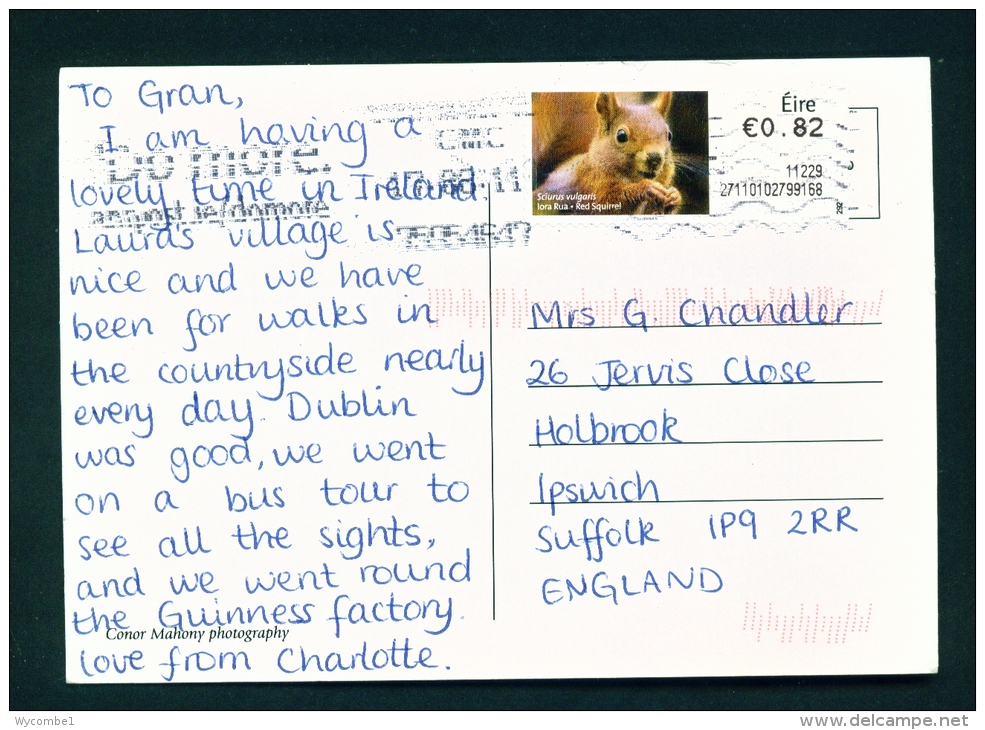 To Gran,
I am having a
lovely time in Ireland.
Laura's village is
nice and we have
been for walks in
the countryside nearly
every day. Dublin
was good, we went
on a bus tour to
see all the sights,
and we went round
the Guinness factory.
Conor Mahony photography
love from Charlotte.
Do more.
CMC
Sciurus vulgaris
Iora Rua • Red Squirrel
Éire
€0.82
11229
27110102799168
292
C
Mrs G. Chandler
26 Jervis Close
Holbrook
Ipswich
Suffolk IP9 2RR
ENGLAND
Wycombe1
www.delcampe.net